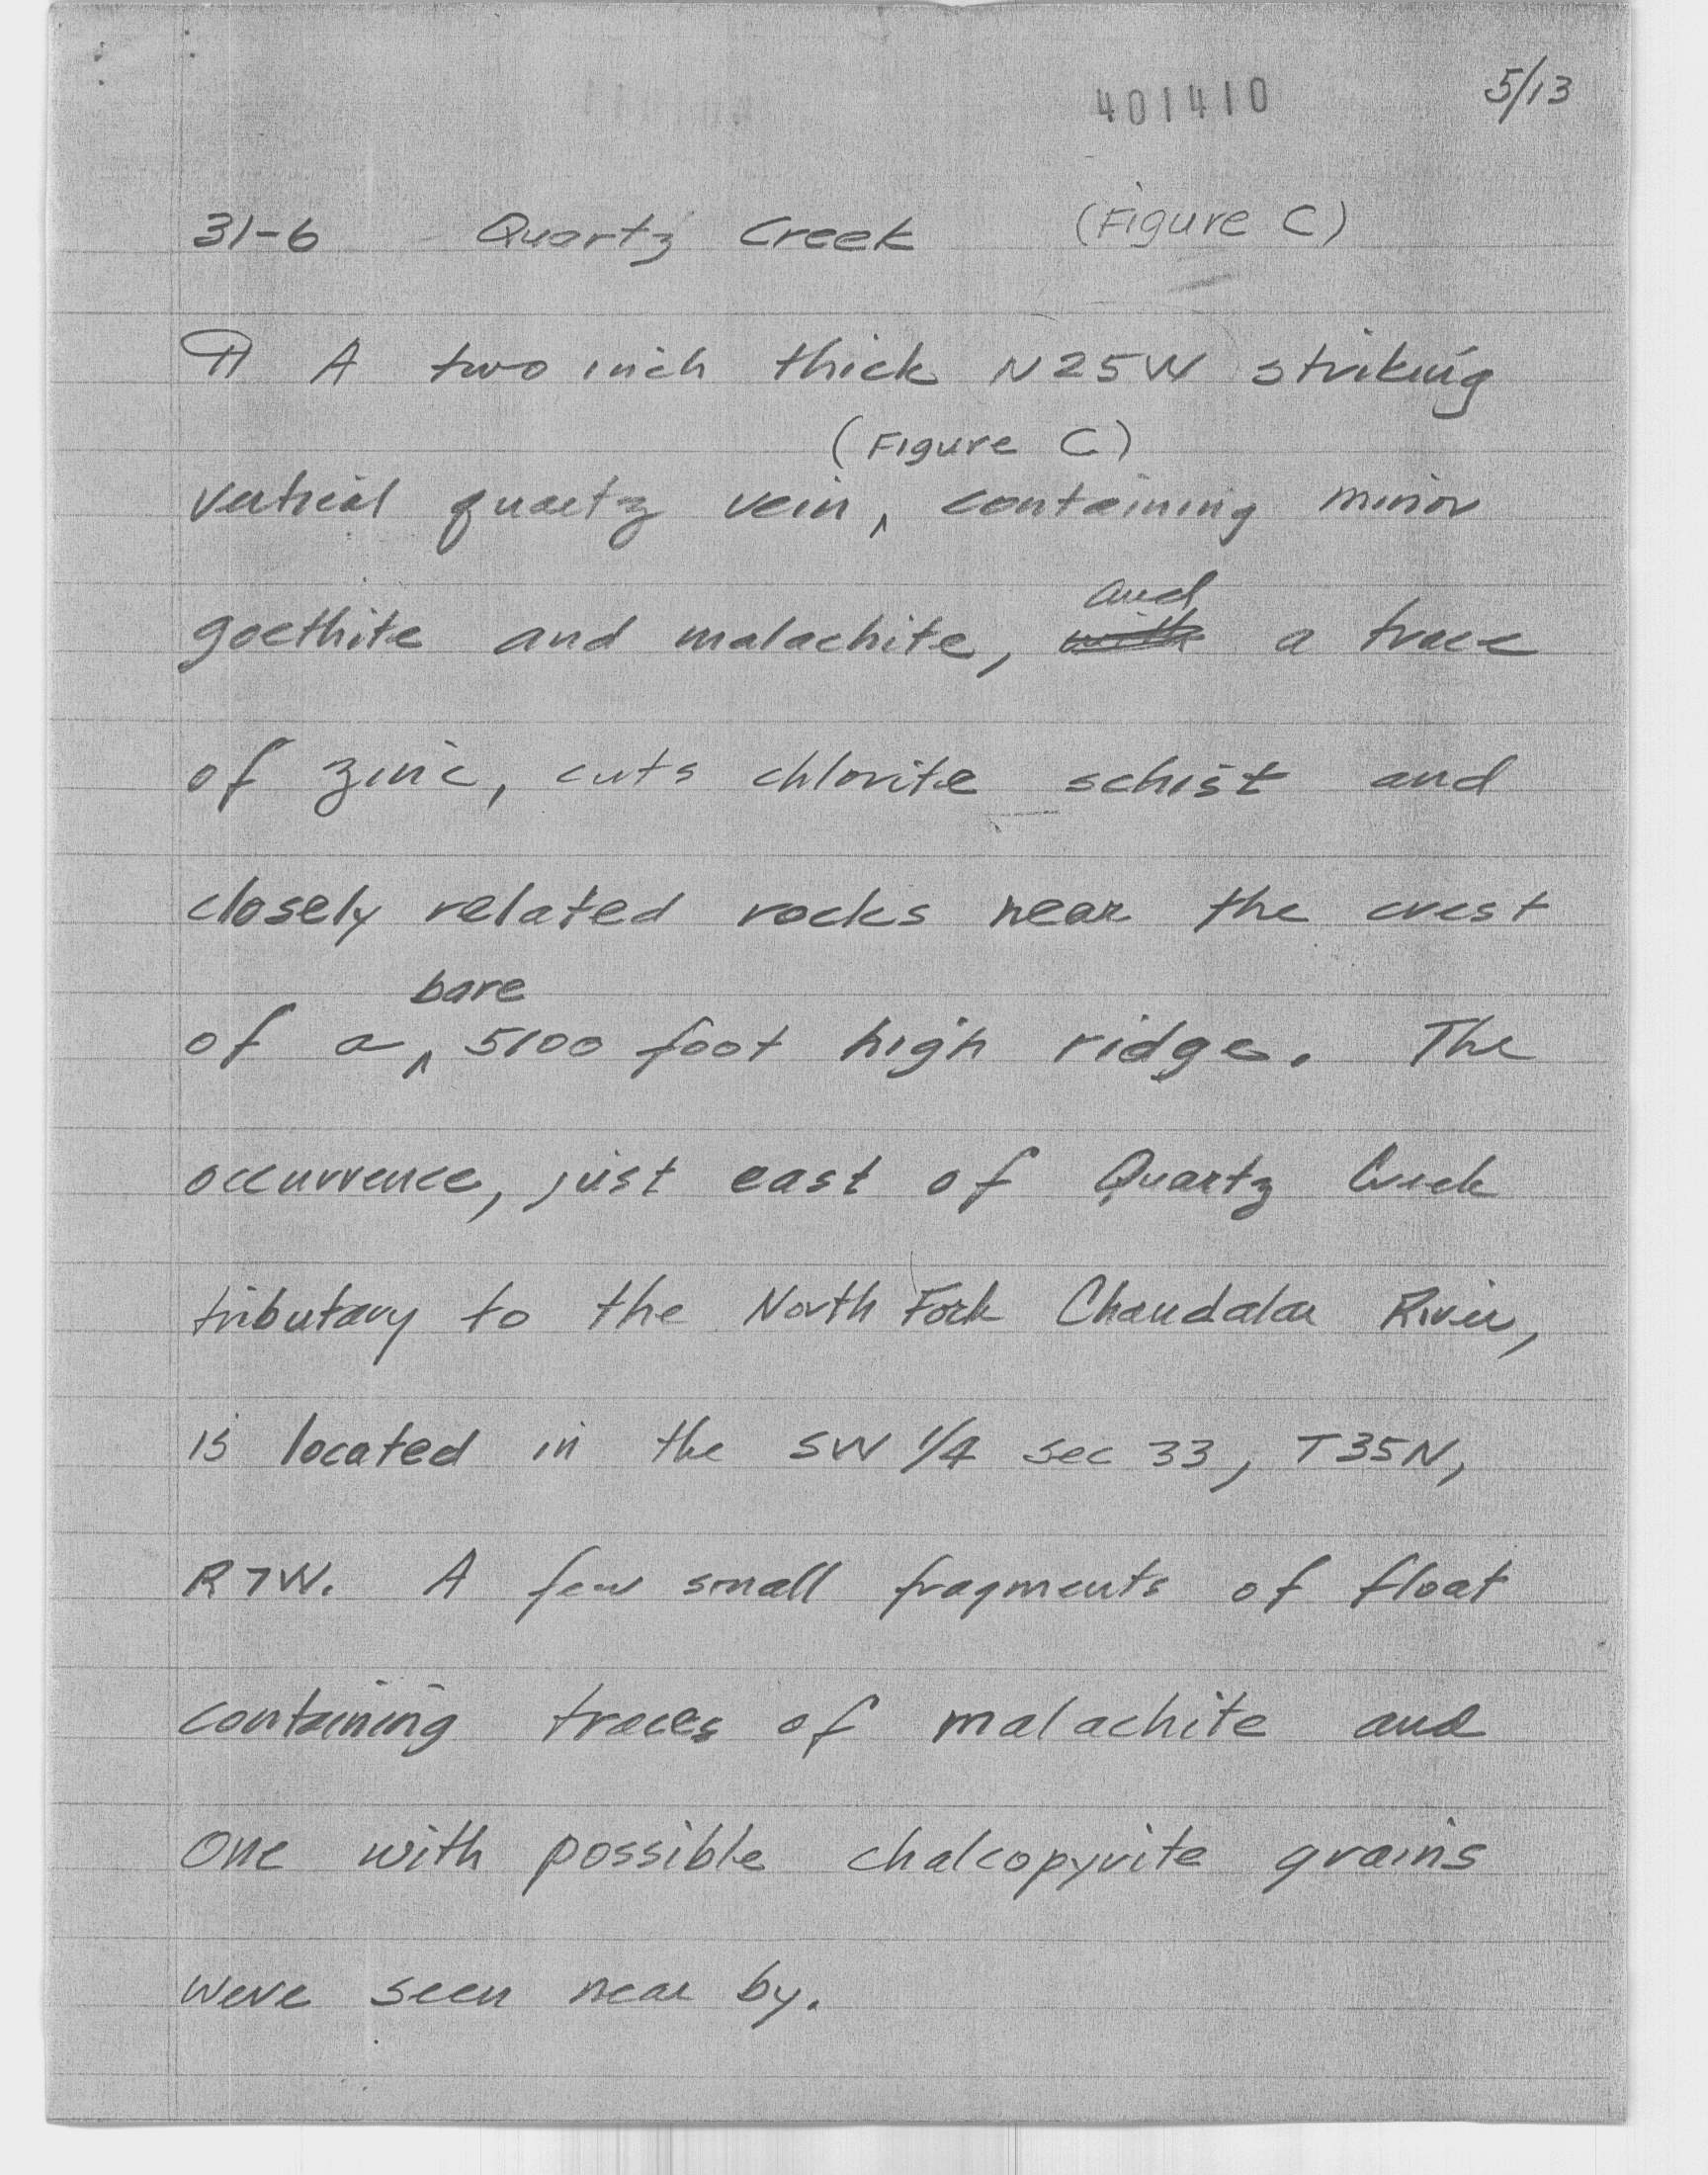 401410 5/13
31-6 Quartz Creek (Figure C)
¶ A two inch thick N25W striking
(Figure C)
vertical quartz vein, ^ containing minor
and
goethite and malachite, with a trace
of zinc, cuts chlorite schist and
closely related rocks near the crest
bare
of a ^ 5100 foot high ridge. The
occurrence, just east of Quartz Creek
tributary to the North Fork Chandalar River,
is located in the SW 1/4 sec 33, T35N,
R7W. A few small fragments of float
containing traces of malachite and
one with possible chalcopyrite grains
were seen near by.